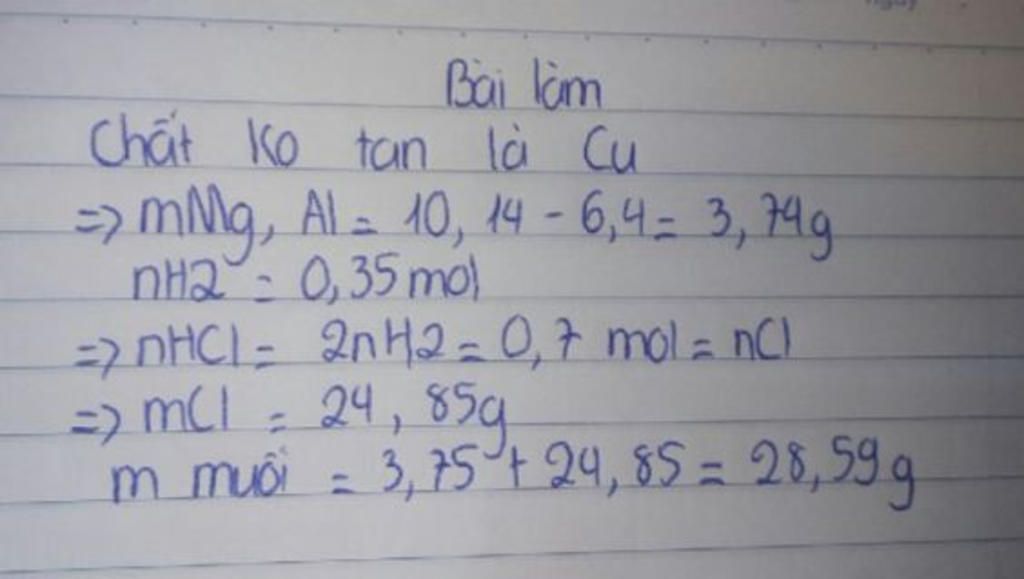 Bài làm
Chất Ko tan là Cu
=> mMg, Al = 10, 14 - 6,4 = 3, 74g
nH2 = 0,35 mol
=> nHCl = 2nH2 = 0,7 mol = nCl
=> mCl = 24, 85g
m muối = 3,75 + 24, 85 = 28,59 g